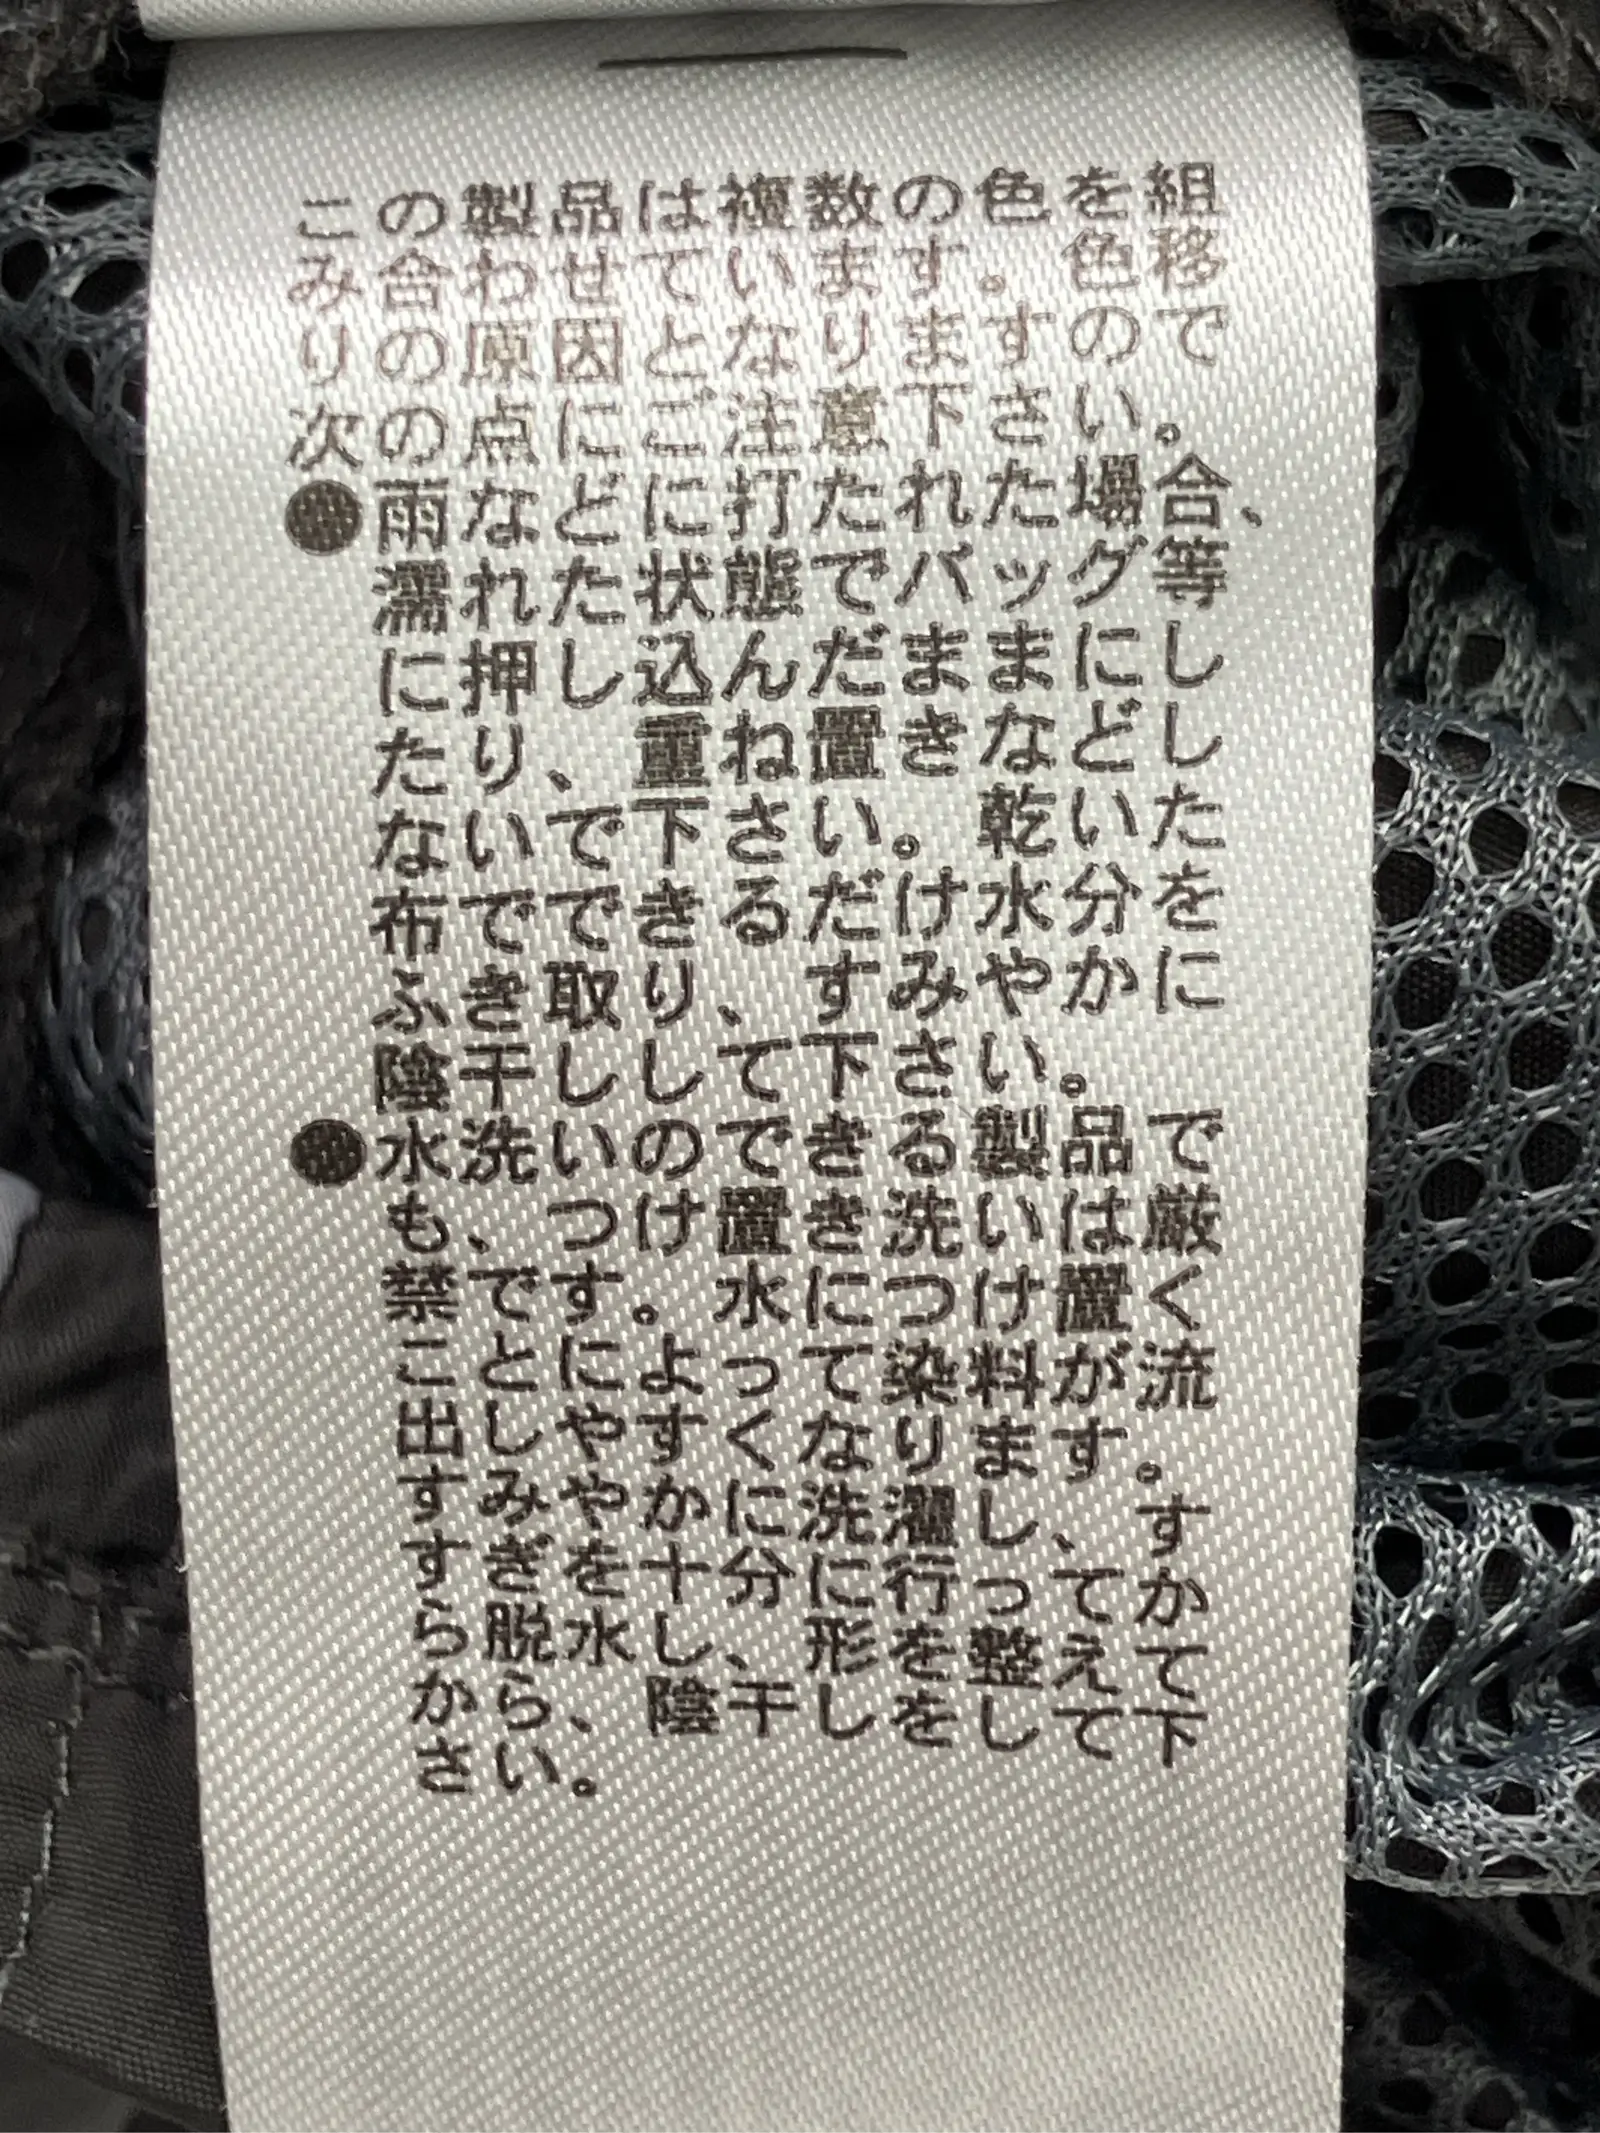 この製品は複数の色を組
み合わせています。色移
りの原因となりますので
次の点にご注意下さい。
●雨などに打たれた場合、
濡れた状態でバッグ等
に押し込んだままにし
たり、重ね置きなどし
ないで下さい。乾いた
布でできるだけ水分を
ふき取り、すみやかに
陰干しして下さい。
●水洗いのできる製品で
も、つけ置き洗いは厳
禁です。水につけ置く
ことによって染料が流
出しやすくなります。
すみやかに洗濯し、す
すぎを十分に行ってか
ら脱水し、形を整えて
から、陰干しをして下
さい。